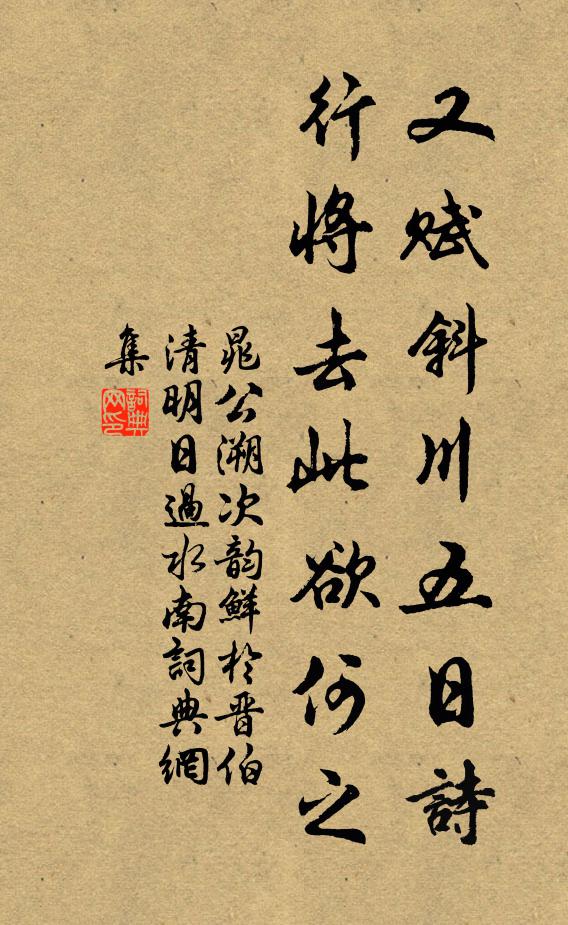 又賦斜川五日詩
行將去此欲何之
晁公溯次韵鮮於晋伯
清明日過水南詞典網
集
詞典
网印